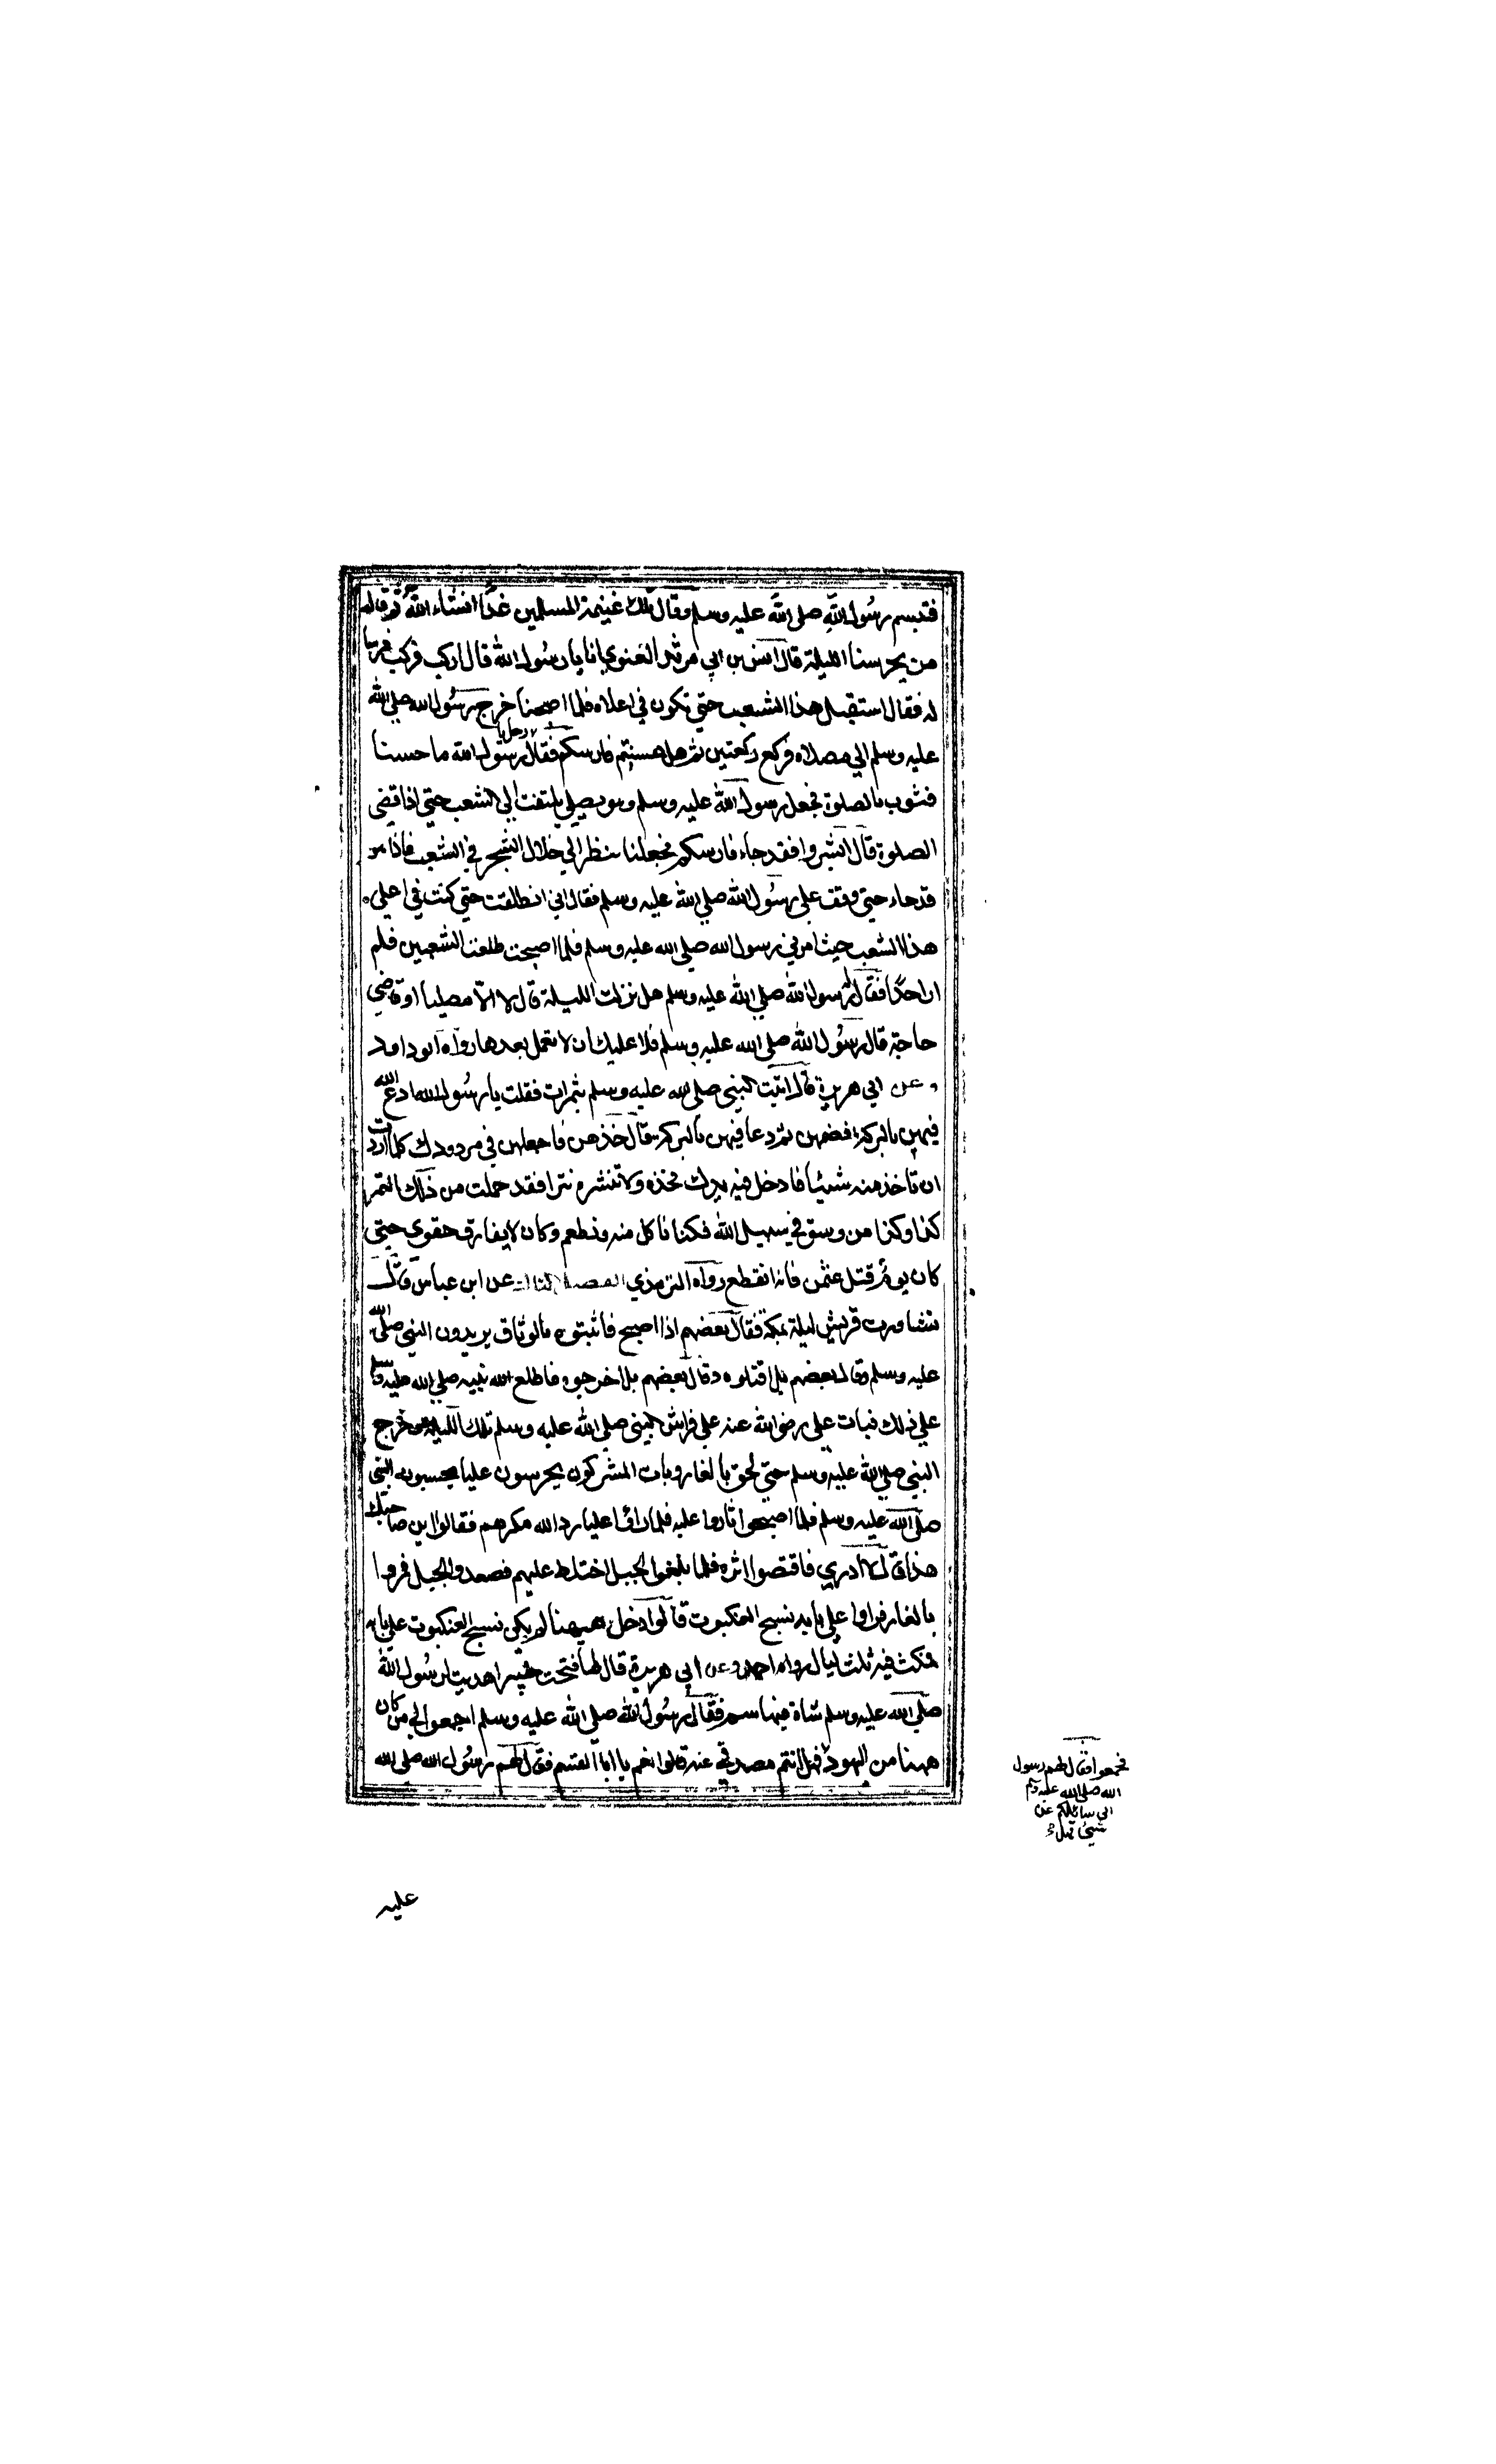 فتبسم رسول الله صلى الله عليه وسلم وقال تلك غنيمة المسلمين غدا انشاء الله ثم قال
من يحرسنا الليلة قال انس بن ابي مرثد الغنوي انا يا رسول الله قال اركب فركب فرسا
له فقال استقبل هذا الشعب حتي تكون في اعلاه فلما اصبحنا خرج رسول الله صلي الله
عليه وسلم الي مصلاه فركع ركعتين ثم هل حسستم فارسكم فقال رجل يا رسول الله ما حسسنا
فثوب بالصلوة فجعل رسول الله عليه وسلم وهو يصلي يلتفت الي الشعب حتي اذا قضي
الصلوة قال ابشروا فقد جاء فارسكم فجعلنا ننظر الي خلال الشجر في الشعب فاذا هو
قد جاء حتي وقف علي رسول الله صلي الله عليه وسلم فقال اني انطلقت حتي كنت في اعلي
هذا الشعب حيث امرني رسول الله صلي الله عليه وسلم فلما اصبحت طلعت الشعبين فلم
ار احدا فقال له رسول الله صلي الله عليه وسلم هل نزلت الليلة قال لا الا مصليا او قاضي
حاجة قال رسول الله صلي الله عليه وسلم فلا عليك ان لا تعمل بعدها رواه ابو داود
وعن ابي هريرة قال اتيت النبي صلي الله عليه وسلم بتمرات فقلت يا رسول الله ادع الله
فيهن بالبركة فضمهن ثم دعا فيهن بالبركة قال خذهن فاجعلهن في مزودك كلما اردت
ان تاخذ منه شيئا فادخل فيه يدك فخذه ولا تنثره نثرا فقد حملت من ذلك التمر
كذا وكذا من وسق في سبيل الله فكنا ناكل منه ونطعم وكان لا يفارق حقوي حتي
كان يوم قتل عثمن فانه انقطع رواه الترمذي الفصل الثالث عن ابن عباس قال
تشاورت قريش ليلة بمكة فقال بعضهم اذا اصبح فاثبتوه بالوثاق يريدون النبي صلي الله
عليه وسلم وقال بعضهم بل اقتلوه وقال بعضهم بل اخرجوه فاطلع الله نبيه صلي الله عليه وسلم
علي ذلك فبات علي رضي الله عنه علي فراش النبي صلي الله عليه وسلم تلك الليلة وخرج
النبي صلي الله عليه وسلم حتي لحق بالغار وبات المشركون يحرسون عليا يحسبونه النبي
صلي الله عليه وسلم فلما اصبحوا ثاروا عليه فلما راوا عليا رد الله مكرهم فقالوا اين صاحبك
هذا قال لا ادري فاقتصوا اثره فلما بلغوا الجبل اختلط عليهم فصعدوا الجبل فمروا
بالغار فراوا علي بابه نسج العنكبوت قالوا لو دخل ههنا لم يكن نسج العنكبوت علي بابه
فمكث فيه ثلث ليال رواه احمد وعن ابي هريرة قال لما فتحت خيبر اهديت لرسول الله
صلي الله عليه وسلم شاة فيها سم فقال رسول الله صلي الله عليه وسلم اجمعوا لي من كان
ههنا من اليهود فهل انتم مصدقي عنه قالوا نعم يا ابا القسم فقال لهم رسول الله صلي الله
فجمعوا فقال لهم رسول
الله صلي الله عليه وسلم
اني سائلكم عن
شيء
عليه